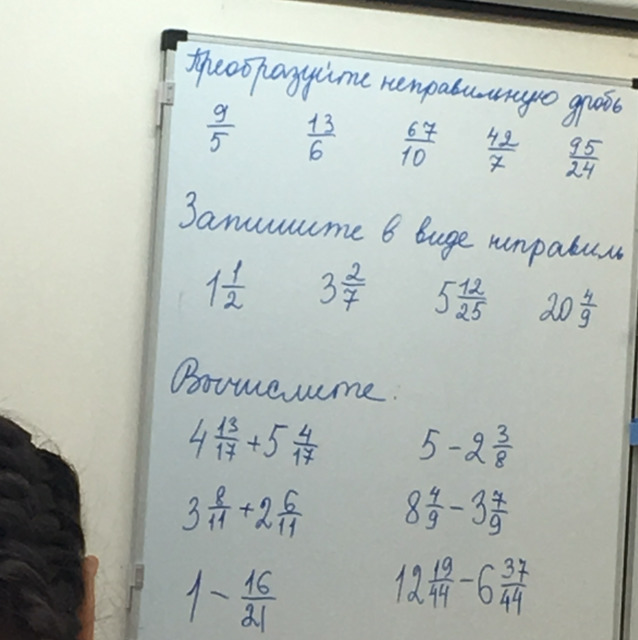 Преобразуйте неправильную дробь
9/5 13/6 67/10 42/7 95/24
Запишите в виде неправиль
1 1/2 3 2/7 5 12/25 20 4/9
Вычислите.
4 13/17 + 5 4/17 5 - 2 3/8
3 8/11 + 2 6/11 8 4/9 - 3 7/9
1 - 16/21 12 19/44 - 6 37/44